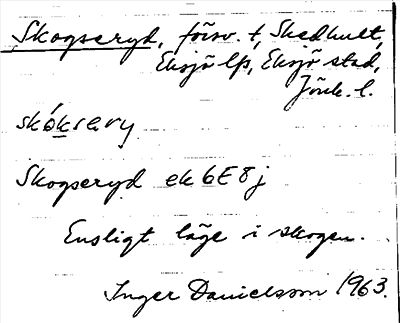 Skogseryd, försv. t, Skedhult,
Eksjö lfs, Eksjö stad,
Jönk. l.
skóksəry
Skogseryd ek 6E8j
Ensligt läge i skogen.
Inger Danielsson 1963.